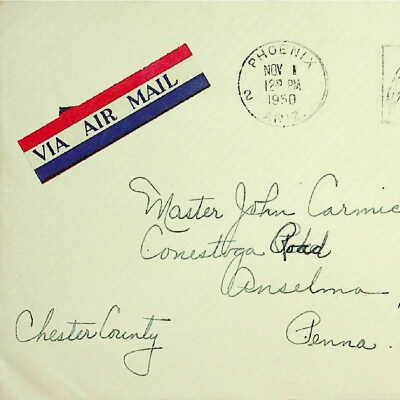 VIA AIR MAIL
PHOENIX
2
NOV 1
12 PM
1950
ARIZ.
Master John Carmic
Conestoga Road
Anselma
Chester County
Penna.